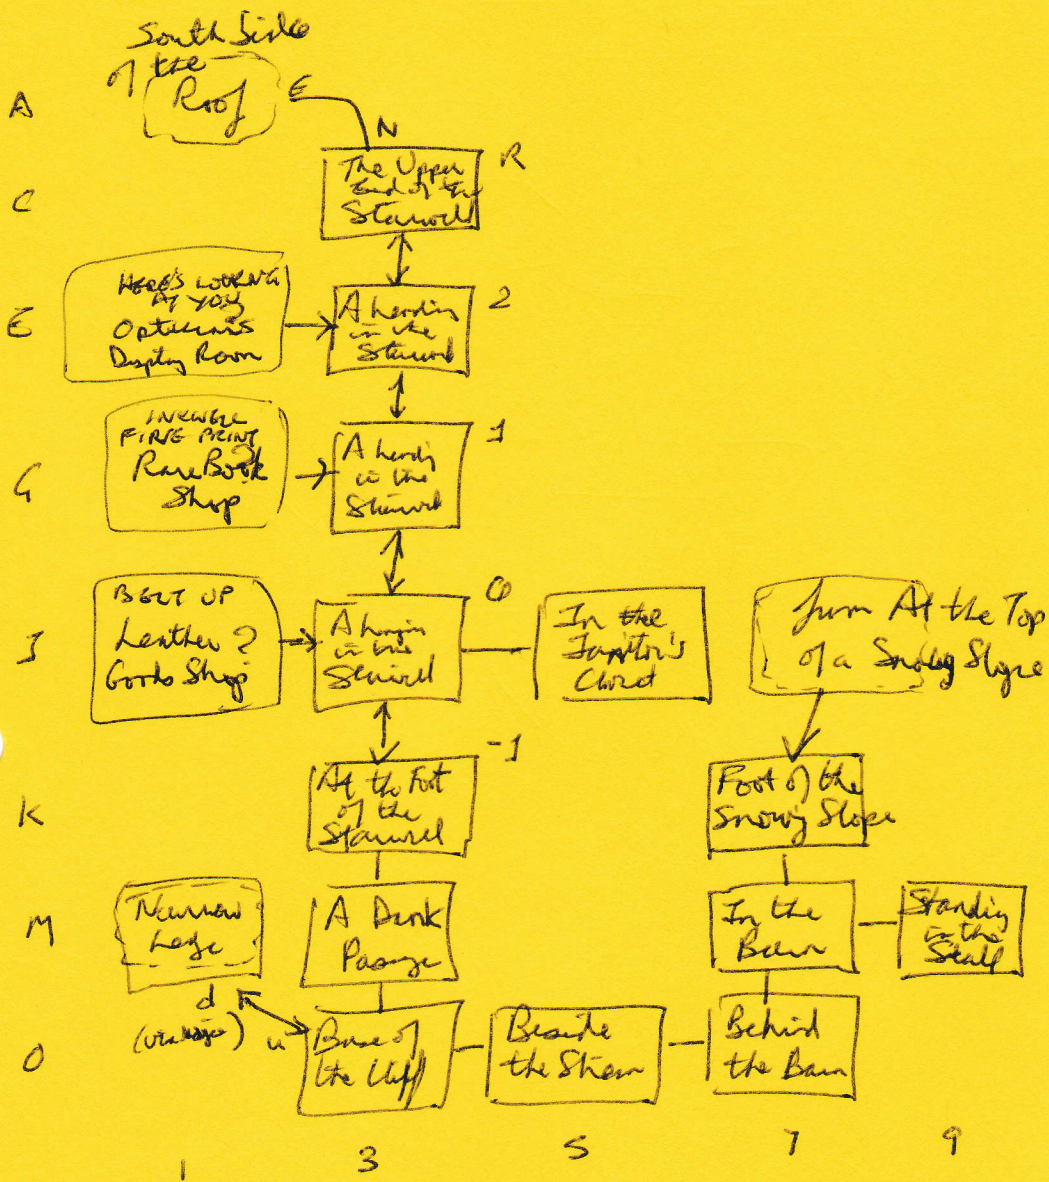 South Side
of the
Roof
E
A
N
R
The Upper
End of the
Stairwell
C
HERE'S LOOKING
AT YOU
Opticians
Display Room
E
A landing
in the
Stairwell
2
INKWELL
FINE PRINT
Rare Book
Shop
G
A landing
in the
Stairwell
1
BELT UP
Leather
Goods Shop
I
A landing
in the
Stairwell
0
In the
Janitor's
Closet
from At the Top
of a Snowy Slope
-1
At the Foot
of the
Stairwell
K
Foot of the
Snowy Slope
M
Narrow
Ledge
A Dank
Passage
In the
Barn
Standing
in the
Stall
d
(via )
u
O
Base of
the Cliff
Beside
the Stream
Behind
the Barn
1
3
5
7
9